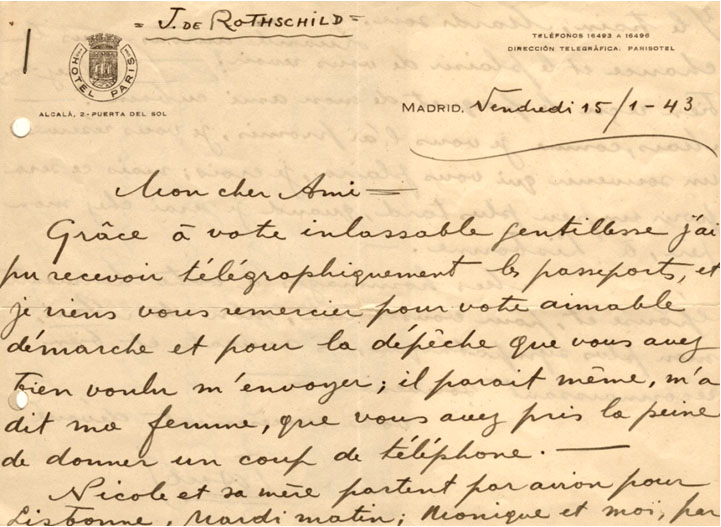 = J. DE ROTHSCHILD =
HOTEL PARIS
ALCALÁ, 2 - PUERTA DEL SOL
TELÉFONOS 16493 A 16496
DIRECCIÓN TELEGRÁFICA. PARISOTEL
MADRID, Vendredi 15/1-43
Mon cher Ami =
Grâce à votre inlassable gentillesse j'ai
pu recevoir télégraphiquement les passeports, et
je viens vous remercier pour votre aimable
démarche et pour la dépêche que vous avez
bien voulu m'envoyer; il parait même, m'a
dit ma femme, que vous avez pris la peine
de donner un coup de téléphone. —
Nicole et sa mère partent par avion pour
Lisbonne, Mardi matin; Monique et moi, par